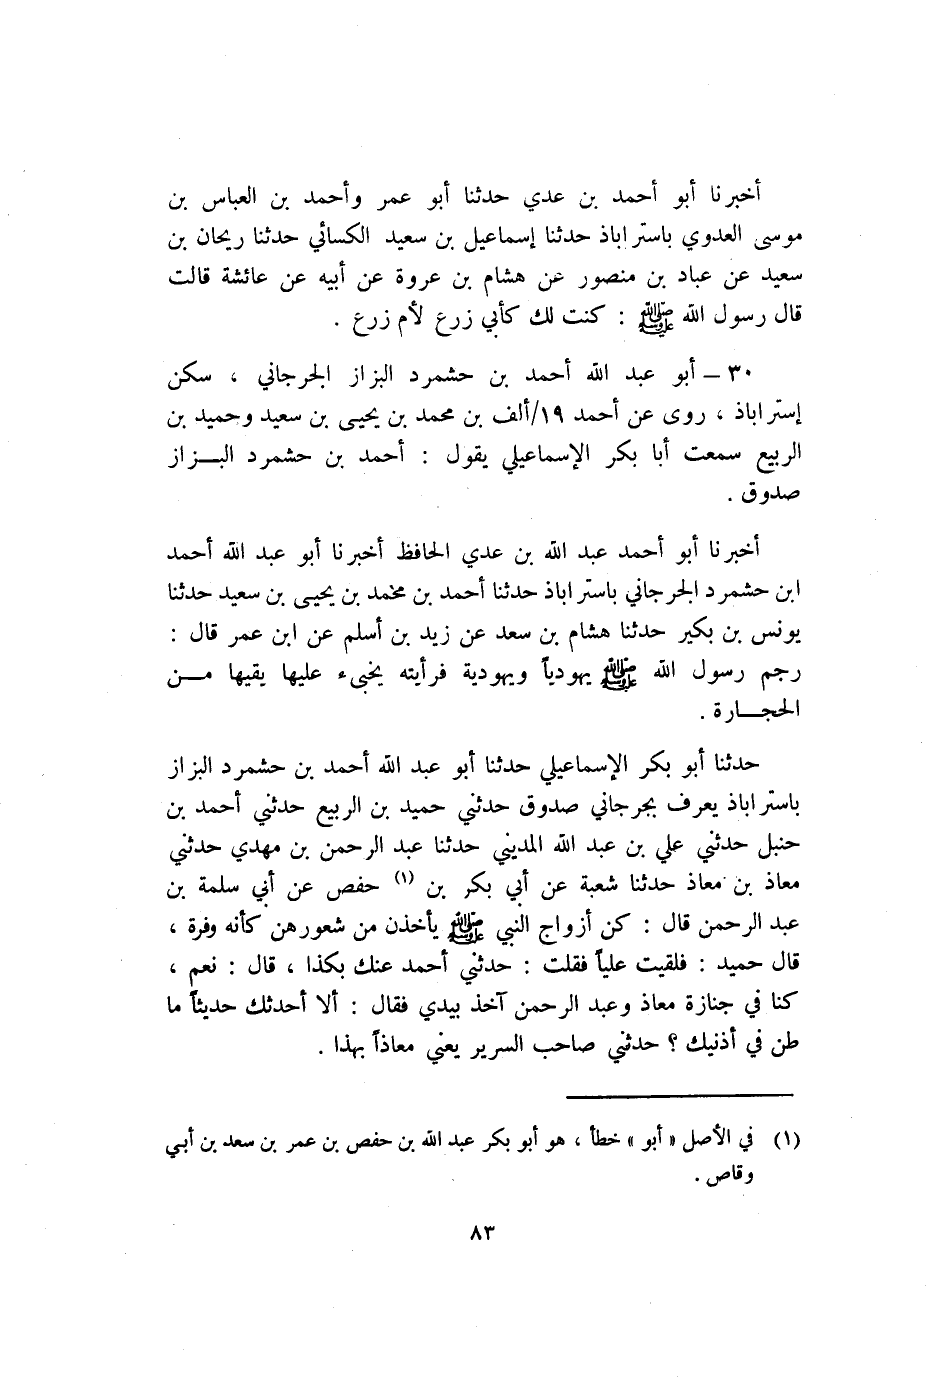 أخبرنا أبو أحمد بن عدي حدثنا أبو عمر وأحمد بن العباس بن
موسى العدوي باستراباذ حدثنا إسماعيل بن سعيد الكسائي حدثنا ريحان بن
سعيد عن عباد بن منصور عن هشام بن عروة عن أبيه عن عائشة قالت
قال رسول الله ﷺ : كنت لك كأبي زرع لأم زرع .
٣٠ – أبو عبد الله أحمد بن حشمرد البزاز الجرجاني ، سكن
إستراباذ ، روى عن أحمد ١٩/ألف بن محمد بن يحيى بن سعيد وحميد بن
الربيع سمعت أبا بكر الإسماعيلي يقول : أحمد بن حشمرد البـزاز
صدوق .
أخبرنا أبو أحمد عبد الله بن عدي الحافظ أخبرنا أبو عبد الله أحمد
ابن حشمرد الجرجاني باستراباذ حدثنا أحمد بن محمد بن يحيى بن سعيد حدثنا
يونس بن بكير حدثنا هشام بن سعد عن زيد بن أسلم عن ابن عمر قال :
رجم رسول الله ﷺ يهودياً ويهودية فرأيته يخبىء عليها يقيها مـن
الحجـارة .
حدثنا أبو بكر الإسماعيلي حدثنا أبو عبد الله أحمد بن حشمرد البزاز
باستراباذ يعرف بجرجاني صدوق حدثني حميد بن الربيع حدثني أحمد بن
حنبل حدثني علي بن عبد الله المديني حدثنا عبد الرحمن بن مهدي حدثني
معاذ بن معاذ حدثنا شعبة عن أبي بكر بن (١) حفص عن أبي سلمة بن
عبد الرحمن قال : كن أزواج النبي ﷺ يأخذن من شعورهن كأنه وفرة ،
قال حميد : فلقيت علياً فقلت : حدثني أحمد عنك بكذا ، قال : نعم ،
كنا في جنازة معاذ وعبد الرحمن آخذ بيدي فقال : ألا أحدثك حديثاً ما
طن في أذنيك ؟ حدثني صاحب السرير يعني معاذاً بهذا .
(١) في الأصل « أبو » خطأ ، هو أبو بكر عبد الله بن حفص بن عمر بن سعد بن أبي
وقاص .
٨٣